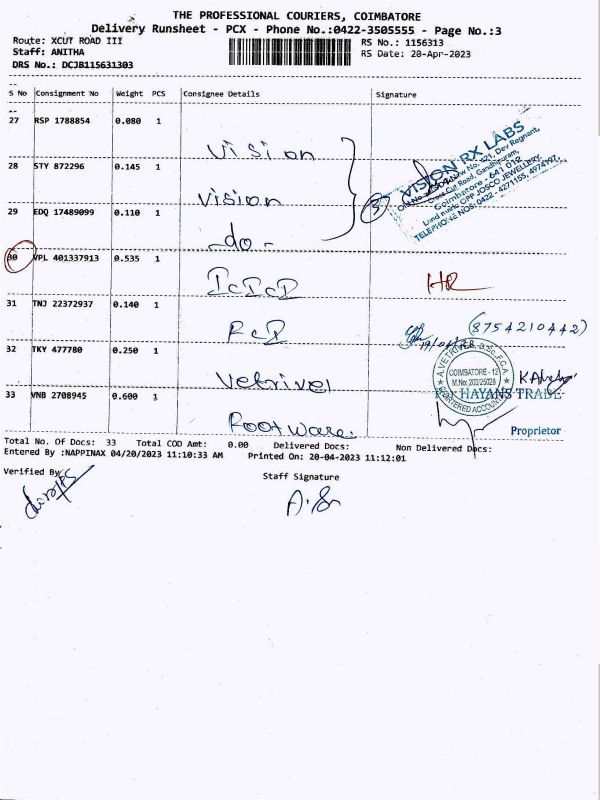 THE PROFESSIONAL COURIERS, COIMBATORE
Delivery Runsheet - PCX - Phone No.:0422-3505555 - Page No.:3
Route: XCUT ROAD III
Staff: ANITHA
DRS No.: DCJB115631303
RS No.: 1156313
RS Date: 20-Apr-2023
S No Consignment No Weight PCS Consignee Details Signature
27 RSP 1788854 0.080 1
Vision
28 STY 872296 0.145 1
Vision
29 EDQ 17489099 0.110 1
-do-
3
VISION RX LABS
Cross Cut Road, Gandhipuram,
Coimbatore - 641 012
Land mark: OPP JOSCO JEWELLERY
TELEPHONE NOS: 0422 - 4271155, 4974197,
30 VPL 401337913 0.535 1
ICICI
HR
31 TNJ 22372937 0.140 1
RCI
(8754210442)
32 TKY 477780 0.250 1
Vetrivel
A.VETRIVEL, B.Sc.,F.C.A.
COIMBATORE - 12
M.No: 200/25028
CHARTERED ACCOUNTANT
33 VNB 2708945 0.600 1
Footware.
HAYANS TRADE
Proprietor
Total No. Of Docs: 33 Total COD Amt: 0.00 Delivered Docs: Non Delivered Docs:
Entered By :NAPPINAX 04/20/2023 11:10:33 AM Printed On: 20-04-2023 11:12:01
Verified By
Staff Signature